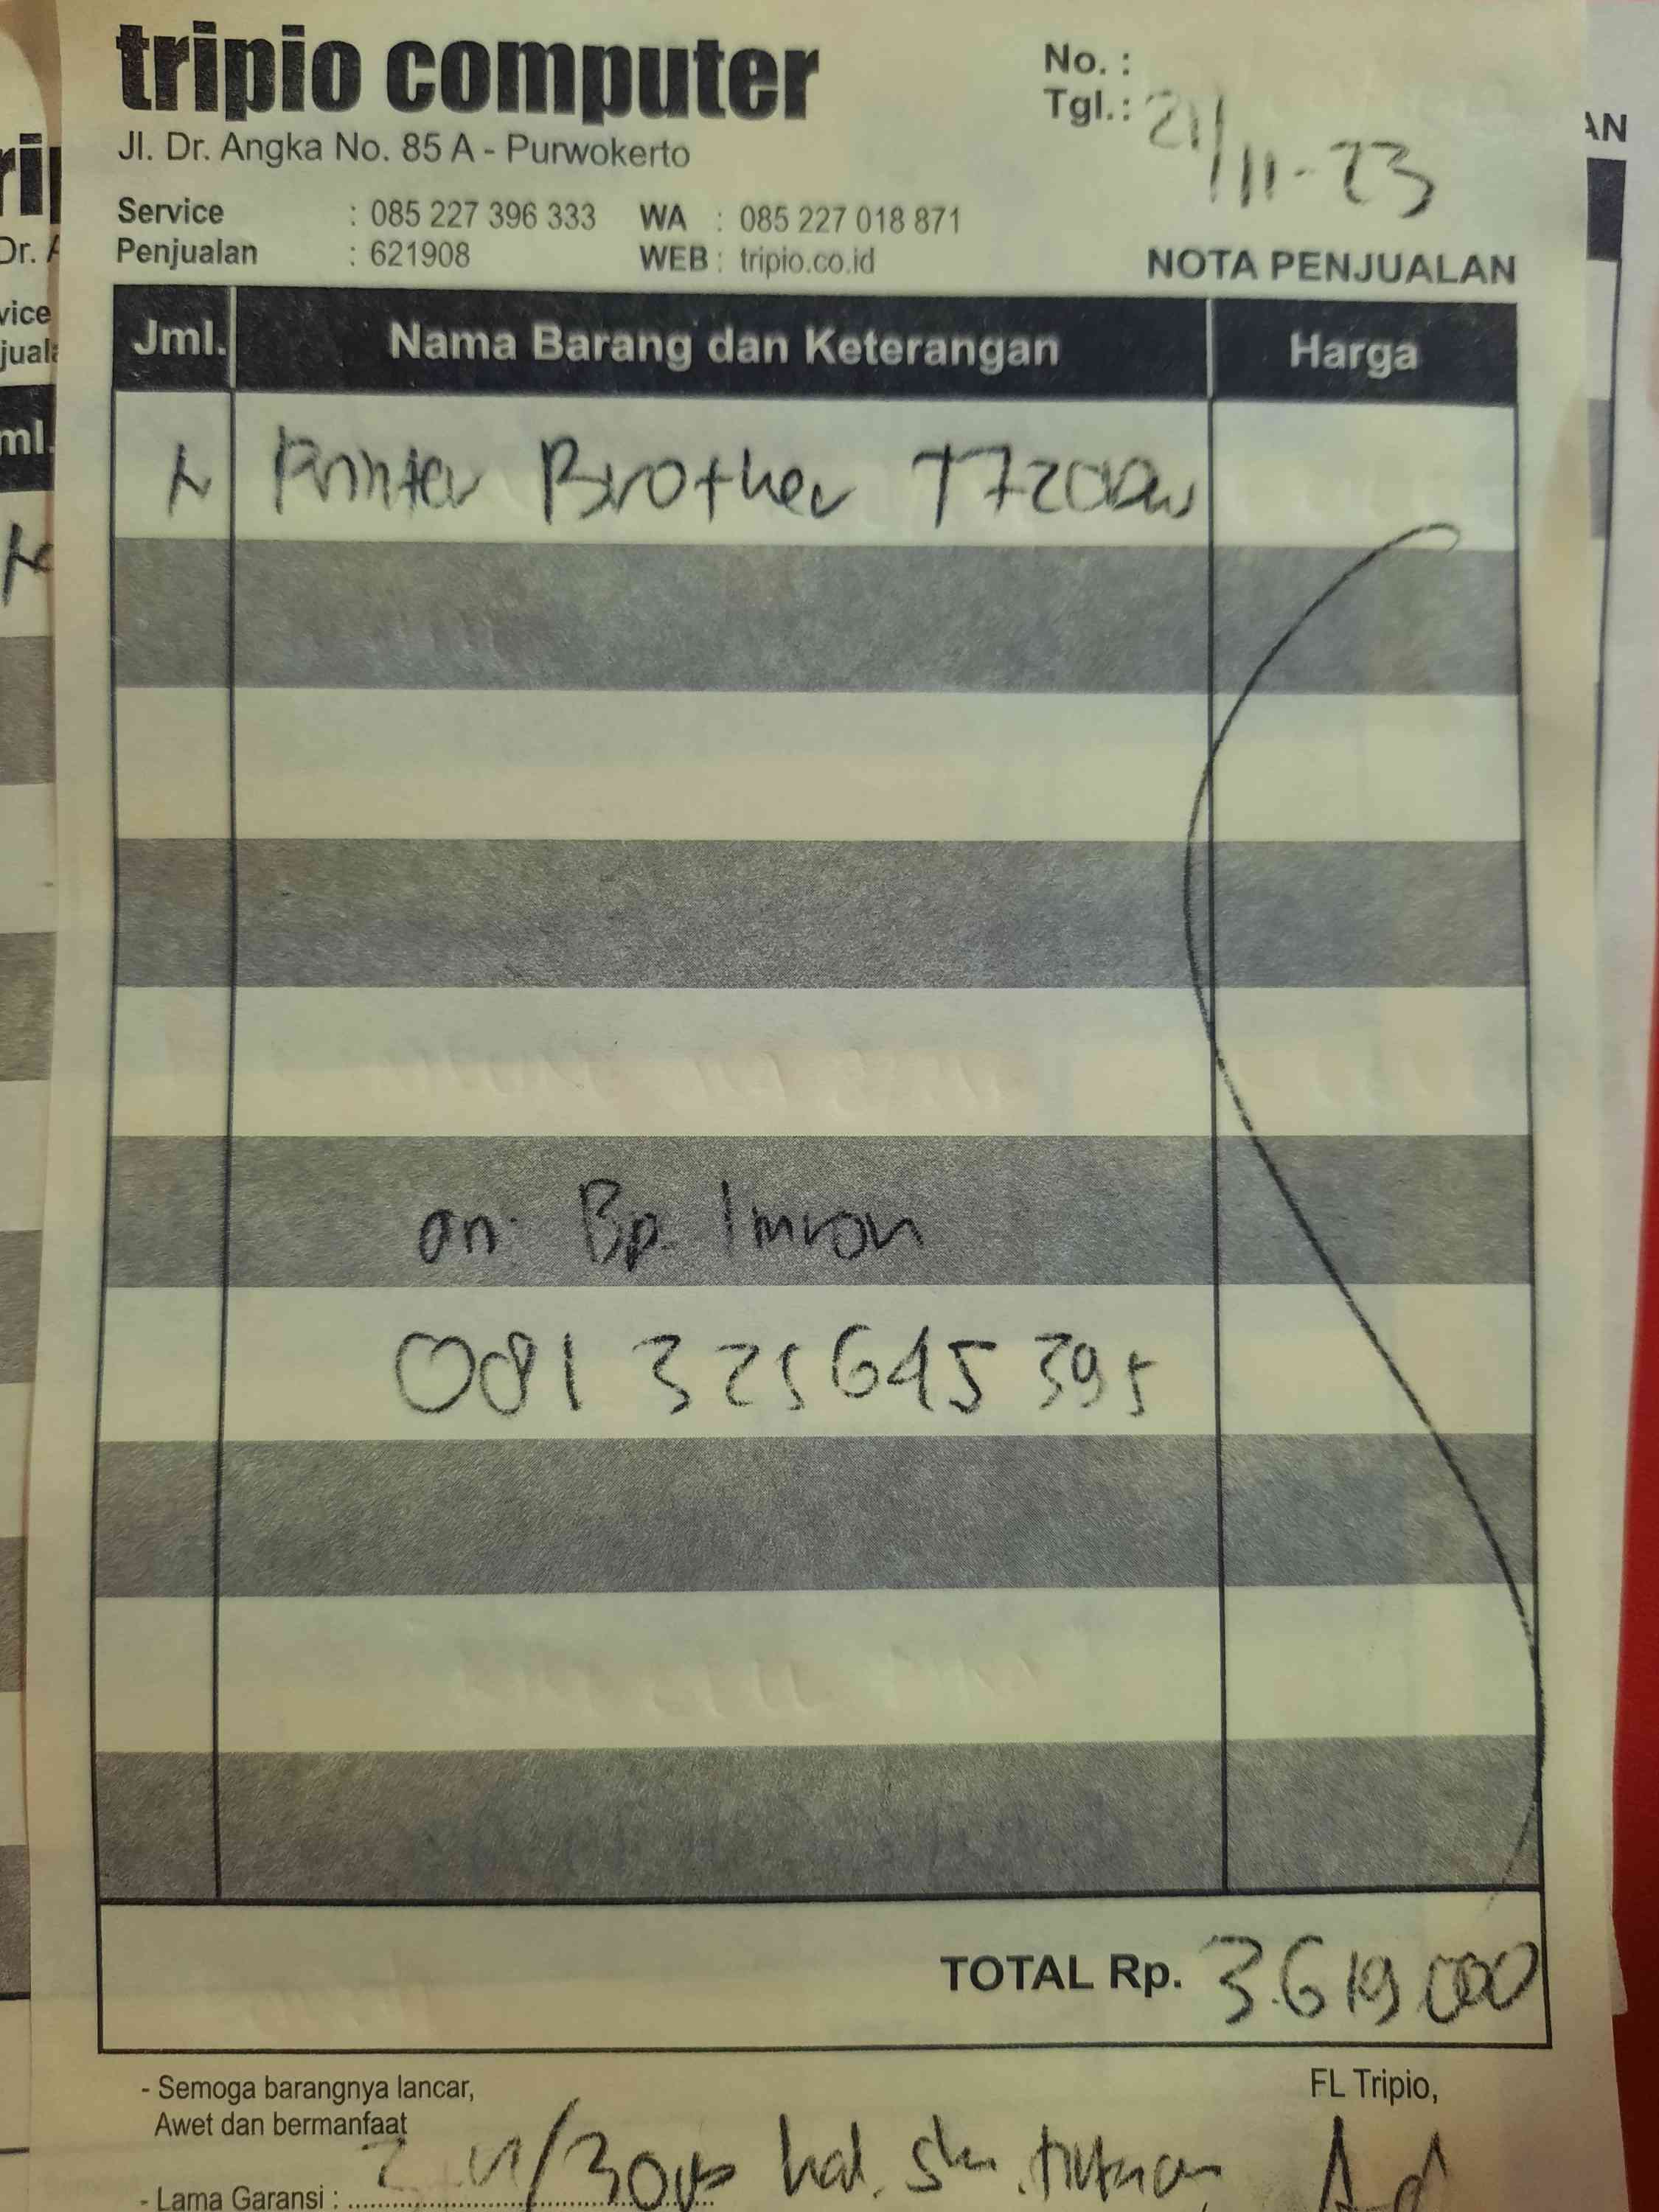 tripio computer
Jl. Dr. Angka No. 85 A - Purwokerto
No. :
Tgl. : 21/11-23
Service : 085 227 396 333 WA : 085 227 018 871
Penjualan : 621908 WEB : tripio.co.id
NOTA PENJUALAN
Jml. Nama Barang dan Keterangan Harga
Printer Brother T720DW
an. Bp. Imron
081 325645 395
TOTAL Rp. 3.619.000
- Semoga barangnya lancar,
Awet dan bermanfaat
FL Tripio,
- Lama Garansi :